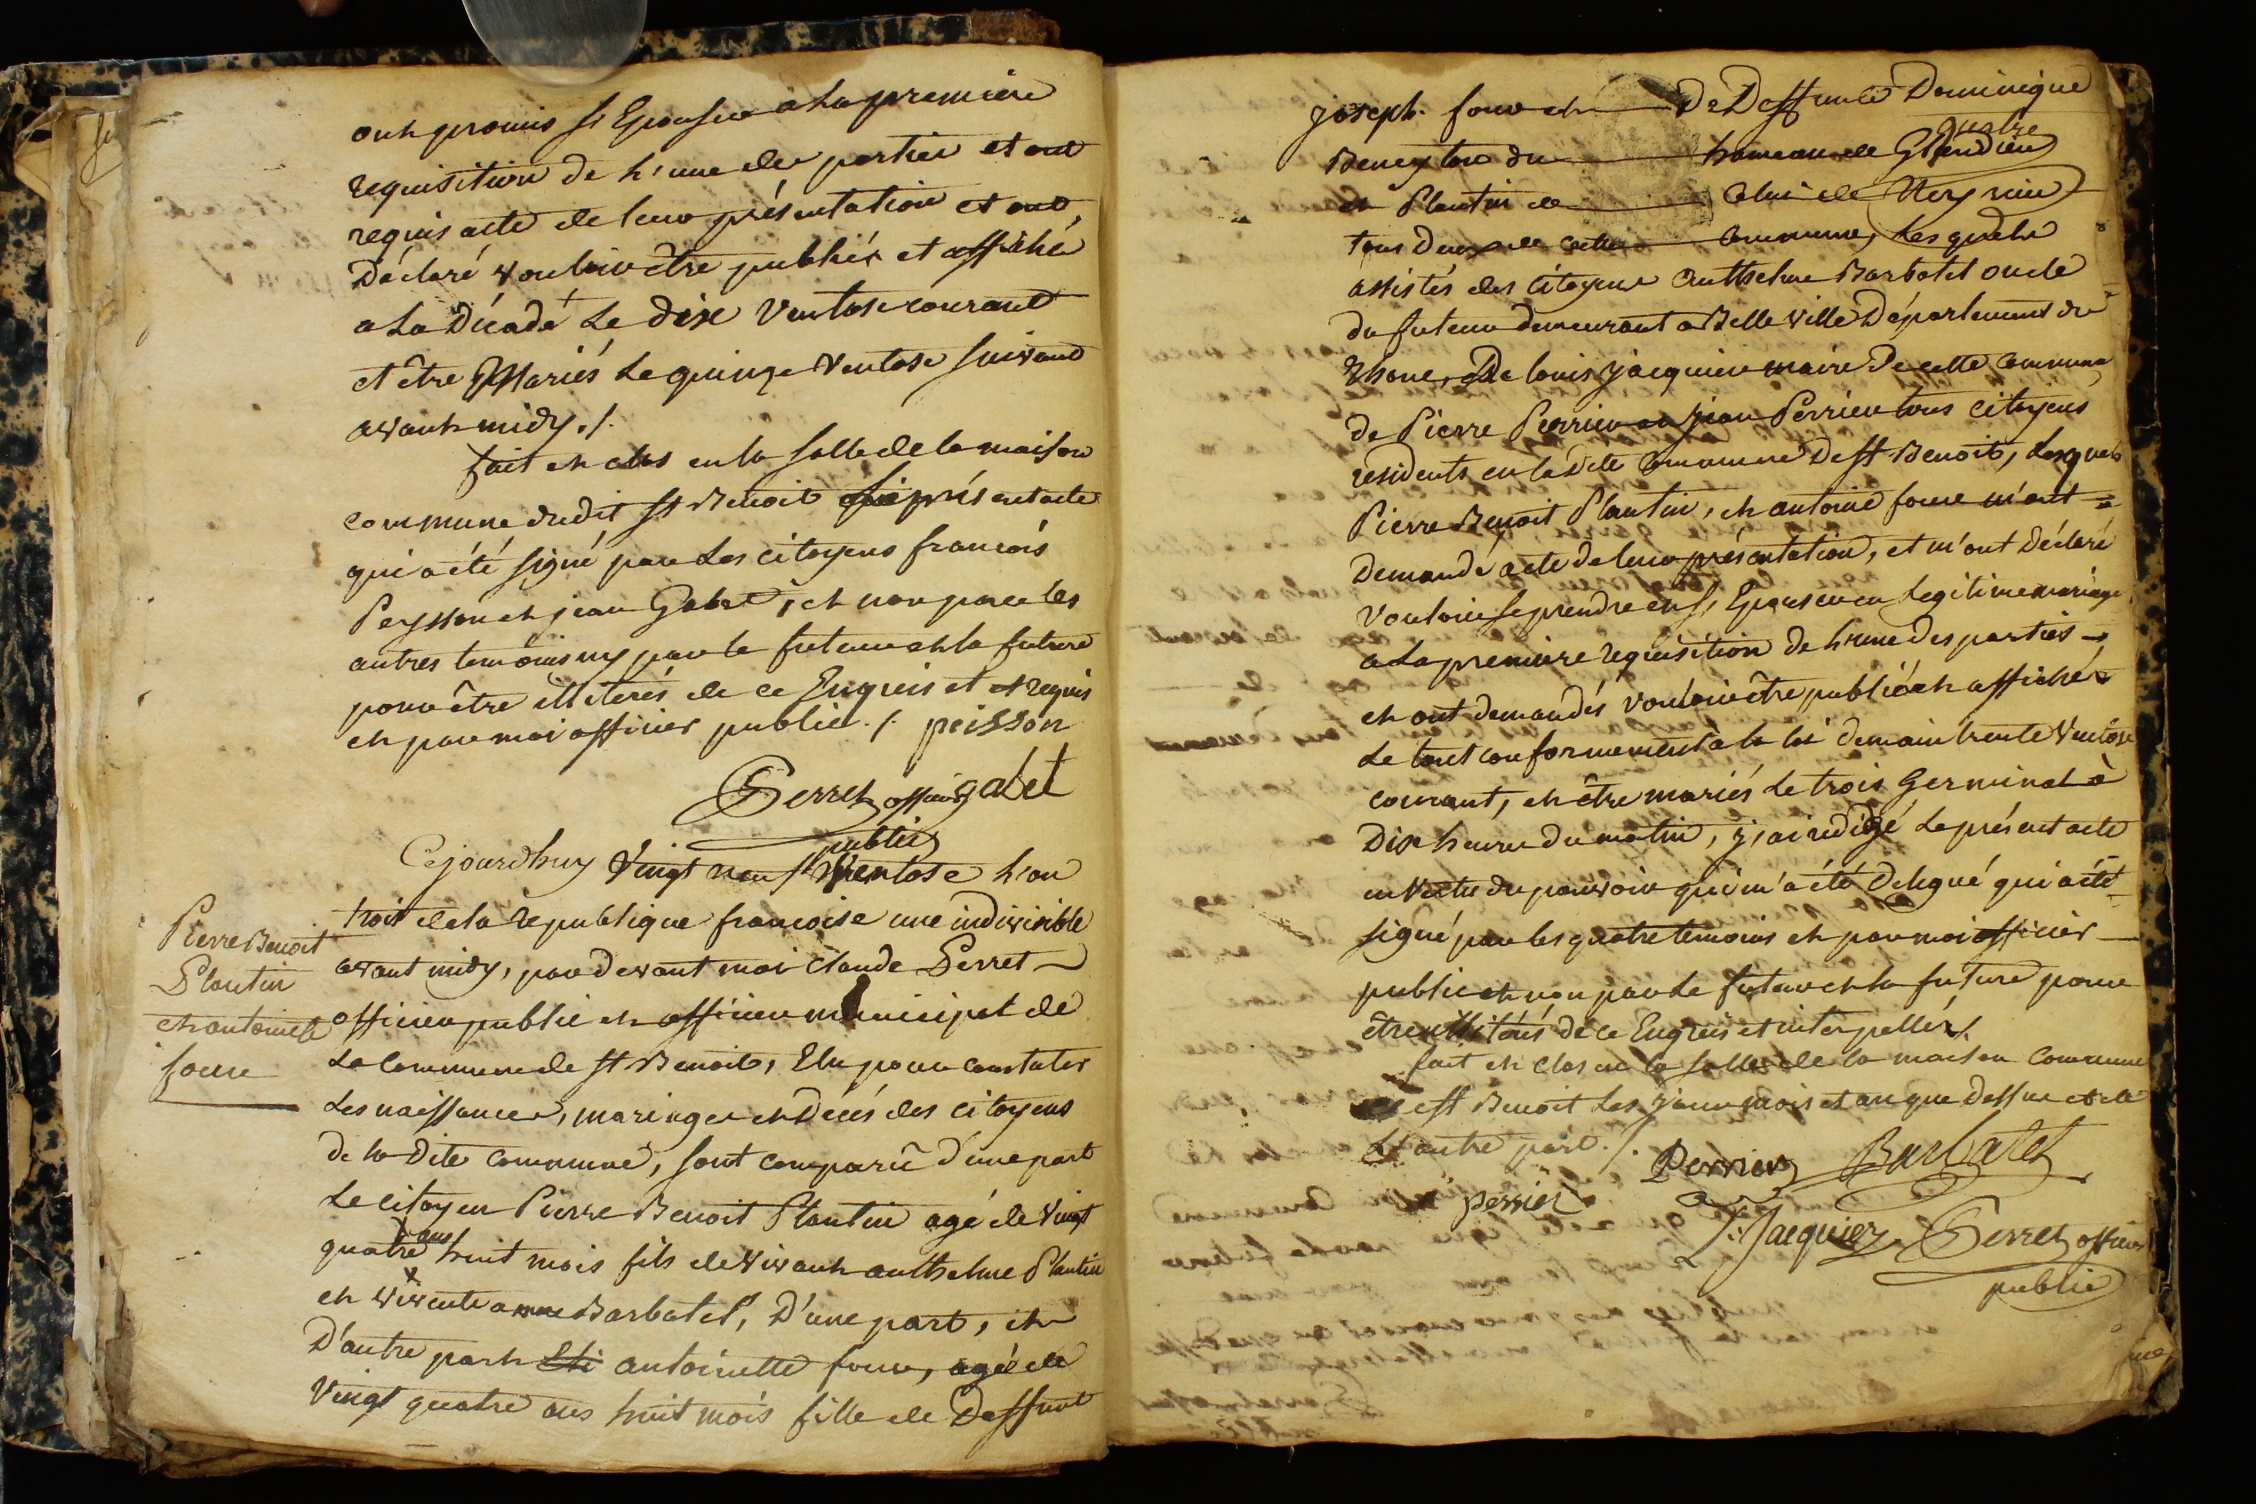 ont promis s'Epouser a la premiere
requisition de l'une de parties et ont
requis acte de leur présentation et ont
Déclaré vouloir être publiés et affiché
a la Décadé le dix Ventose courant
et être Mariés le quinze Ventose suivant
avant midy ./.
fait et clos en la salle de la maison
commune dudit St Benoit présent acte
qui a été signé par les citoyens francois
Peysson et jean Gabet, et non par les
autres temoins ny par le futeur et la future
pour être illiterés de ce Enquis et et requis
et par moi officier public ./. peisson
Perret officier gabet
public
Cejourdhuy Vingt neuf Ventose l'an
trois de la republique francoise une indivisible
avant midy, par devant moi Claude Perret
officier public et officier municipal de
la Commune de St Benoit, Elu pour constater
les naissances, mariages et Décés des citoyens
de la dite commune, sont comparû d'une part
Le citoyen Pierre Benoit Plantin agé de vingt
quatre ans huit mois fils de vivant anthelme Plantin
et vivente anne Barbatet, D'une part, et
D'autre part antoinette foure, agée de
Vingt quatre ans huit mois fille de Deffunt
Pierre Benoit
Plantin
et antoinette
foure
joseph foure et De Deffunte Dominique
Beneyton du hameau de Glandieu
et Plantin de Celui de
tous deux de cette Commune, Lesquels
assistés des citoyens Anthelme Barbatet oncle
du futeur demeurant a Belleville Département du
Rhone, De louis jacquier maire De cette Commune
de Pierre Perrier et jean Perrier tous citoyens
residents en la dite Commune De St Benoit, Lesquels
Pierre Benoit Plantin, et antoine foure m'ont
Demandé acte de leur présentation, et m'ont Déclaré
Vouloir se prendre en s'Epouser en Legitime mariage
a La premiere requisition de l'une des parties
et ont demandés vouloir être publié et affichés
Le tout conformement a la loi demain trente Ventose
courant, et être mariés le trois Germinal à
Dix heures du matin, j'ai redigé Le présent acte
en Vertu du pouvoir qui m'a été Delegué qui a été
signé par les quatre temoins et par moi officier
public et non par Le futeur et la future pour
être illiterés de ce Enquis et interpellés ./.
fait et clos en la salle de la maison Commune
de St Benoit Les jour mois et an que Dessus et de
L'autre part ./. Perrier Barbatet
perrier
L: Jacquier Perret officier
public